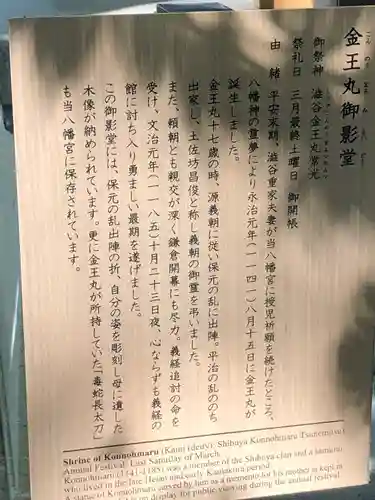 金王丸御影堂
こんのうまるみえいどう
御祭神　渋谷金王丸常光
祭礼日　三月最終土曜日　御開帳
由　緒　平安末期、渋谷重家夫妻が当八幡宮に授児祈願を続けたところ、
八幡神の霊夢により永治元年(一一四一)八月十五日に金王丸が
誕生しました。
金王丸十七歳の時、源義朝に従い保元の乱に出陣。平治の乱ののち
出家し、土佐坊昌俊と称し義朝の御霊を弔いました。
また、頼朝とも親交が深く鎌倉開幕にも尽力。義経追討の命を
受け、文治元年(一一八五)十月二十三日夜、心ならずも義経の
館に討ち入り勇ましい最期を遂げました。
この御影堂には、保元の乱出陣の折、自分の姿を彫刻し母に遺した
木像が納められています。更に金王丸が所持していた「毒蛇長太刀」
も当八幡宮に保存されています。
Shrine of Konnohmaru (Kami (deity): Shibuya Konnohmaru Tsunemitsu)
Annual Festival: Last Saturday of March
Konnohmaru (1141-1185) was a member of the Shibuya clan and a samurai
who lived in the late Heian and early Kamakura period.
A statue of Konnohmaru carved by him as a memento for his mother is kept in
on display for public viewing during the annual festival.